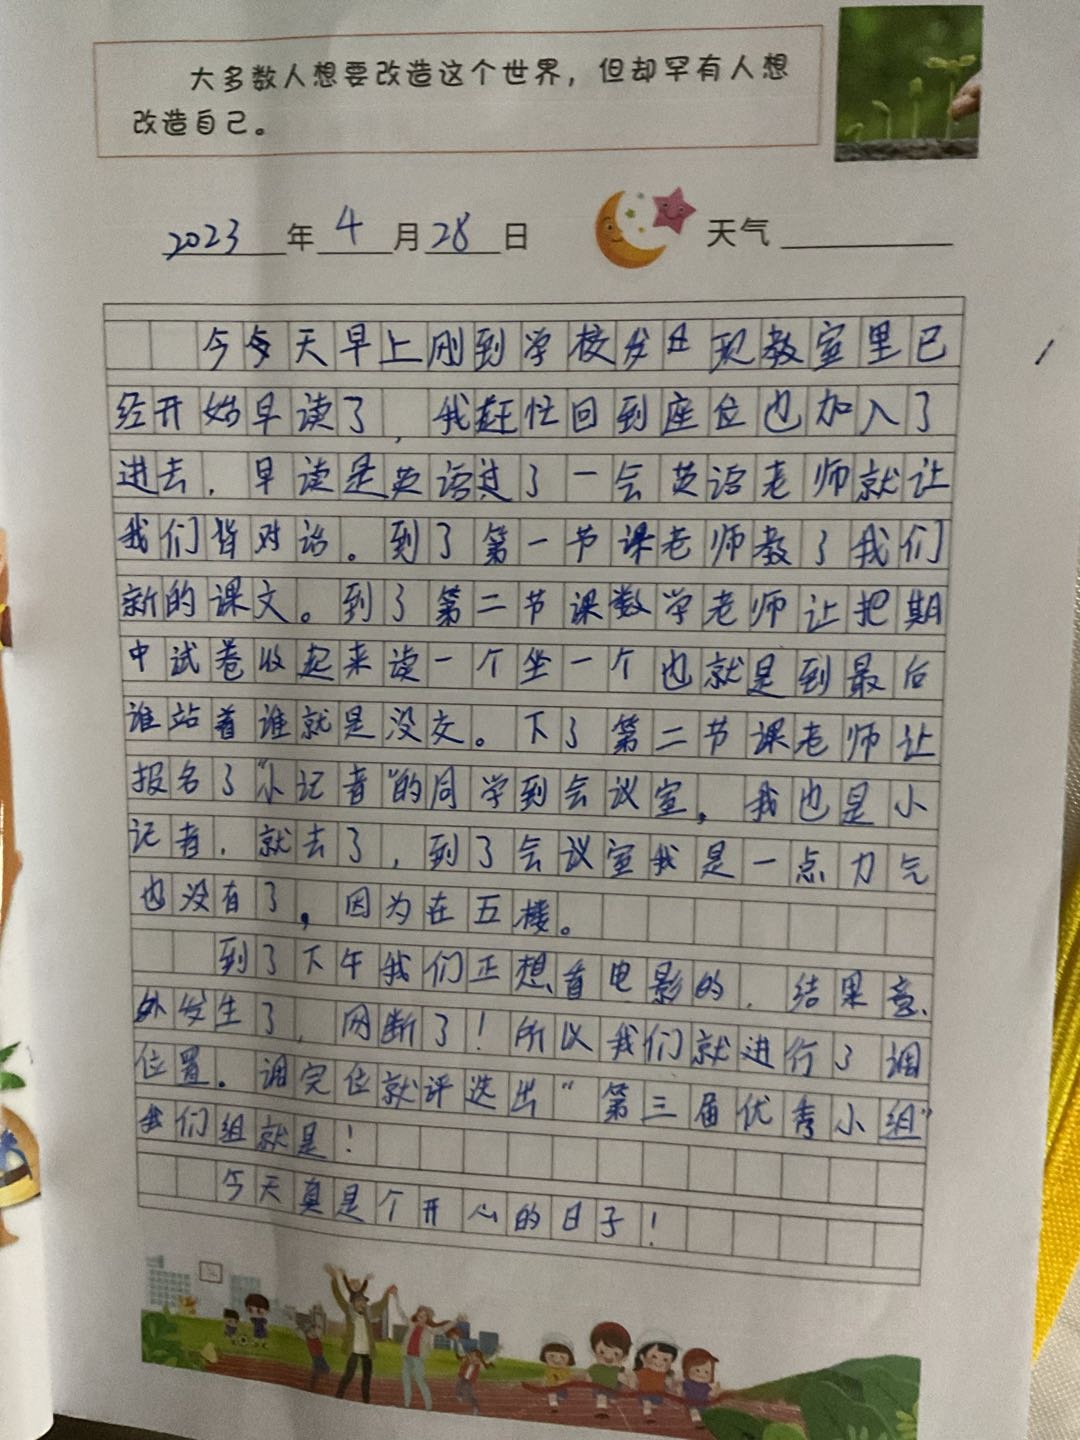 大多数人想要改造这个世界，但却罕有人想
改造自己。
2023年4月28日 天气
今天早上刚到学校发现教室里已
经开始早读了，我赶忙回到座位也加入了
进去，早读是英语过了一会英语老师就让
我们背对话。到了第一节课老师教了我们
新的课文。到了第二节课数学老师让把期
中试卷收起来读一个坐一个也就是到最后
谁站着谁就是没交。下了第二节课老师让
报名了“小记者”的同学到会议室，我也是小
记者，就去了，到了会议室我是一点力气
也没有了，因为在五楼。
到了下午我们正想看电影的，结果意
外发生了，网断了！所以我们就进行了调
位置。调完位就评选出“第三届优秀小组”
我们组就是！
今天真是个开心的日子！